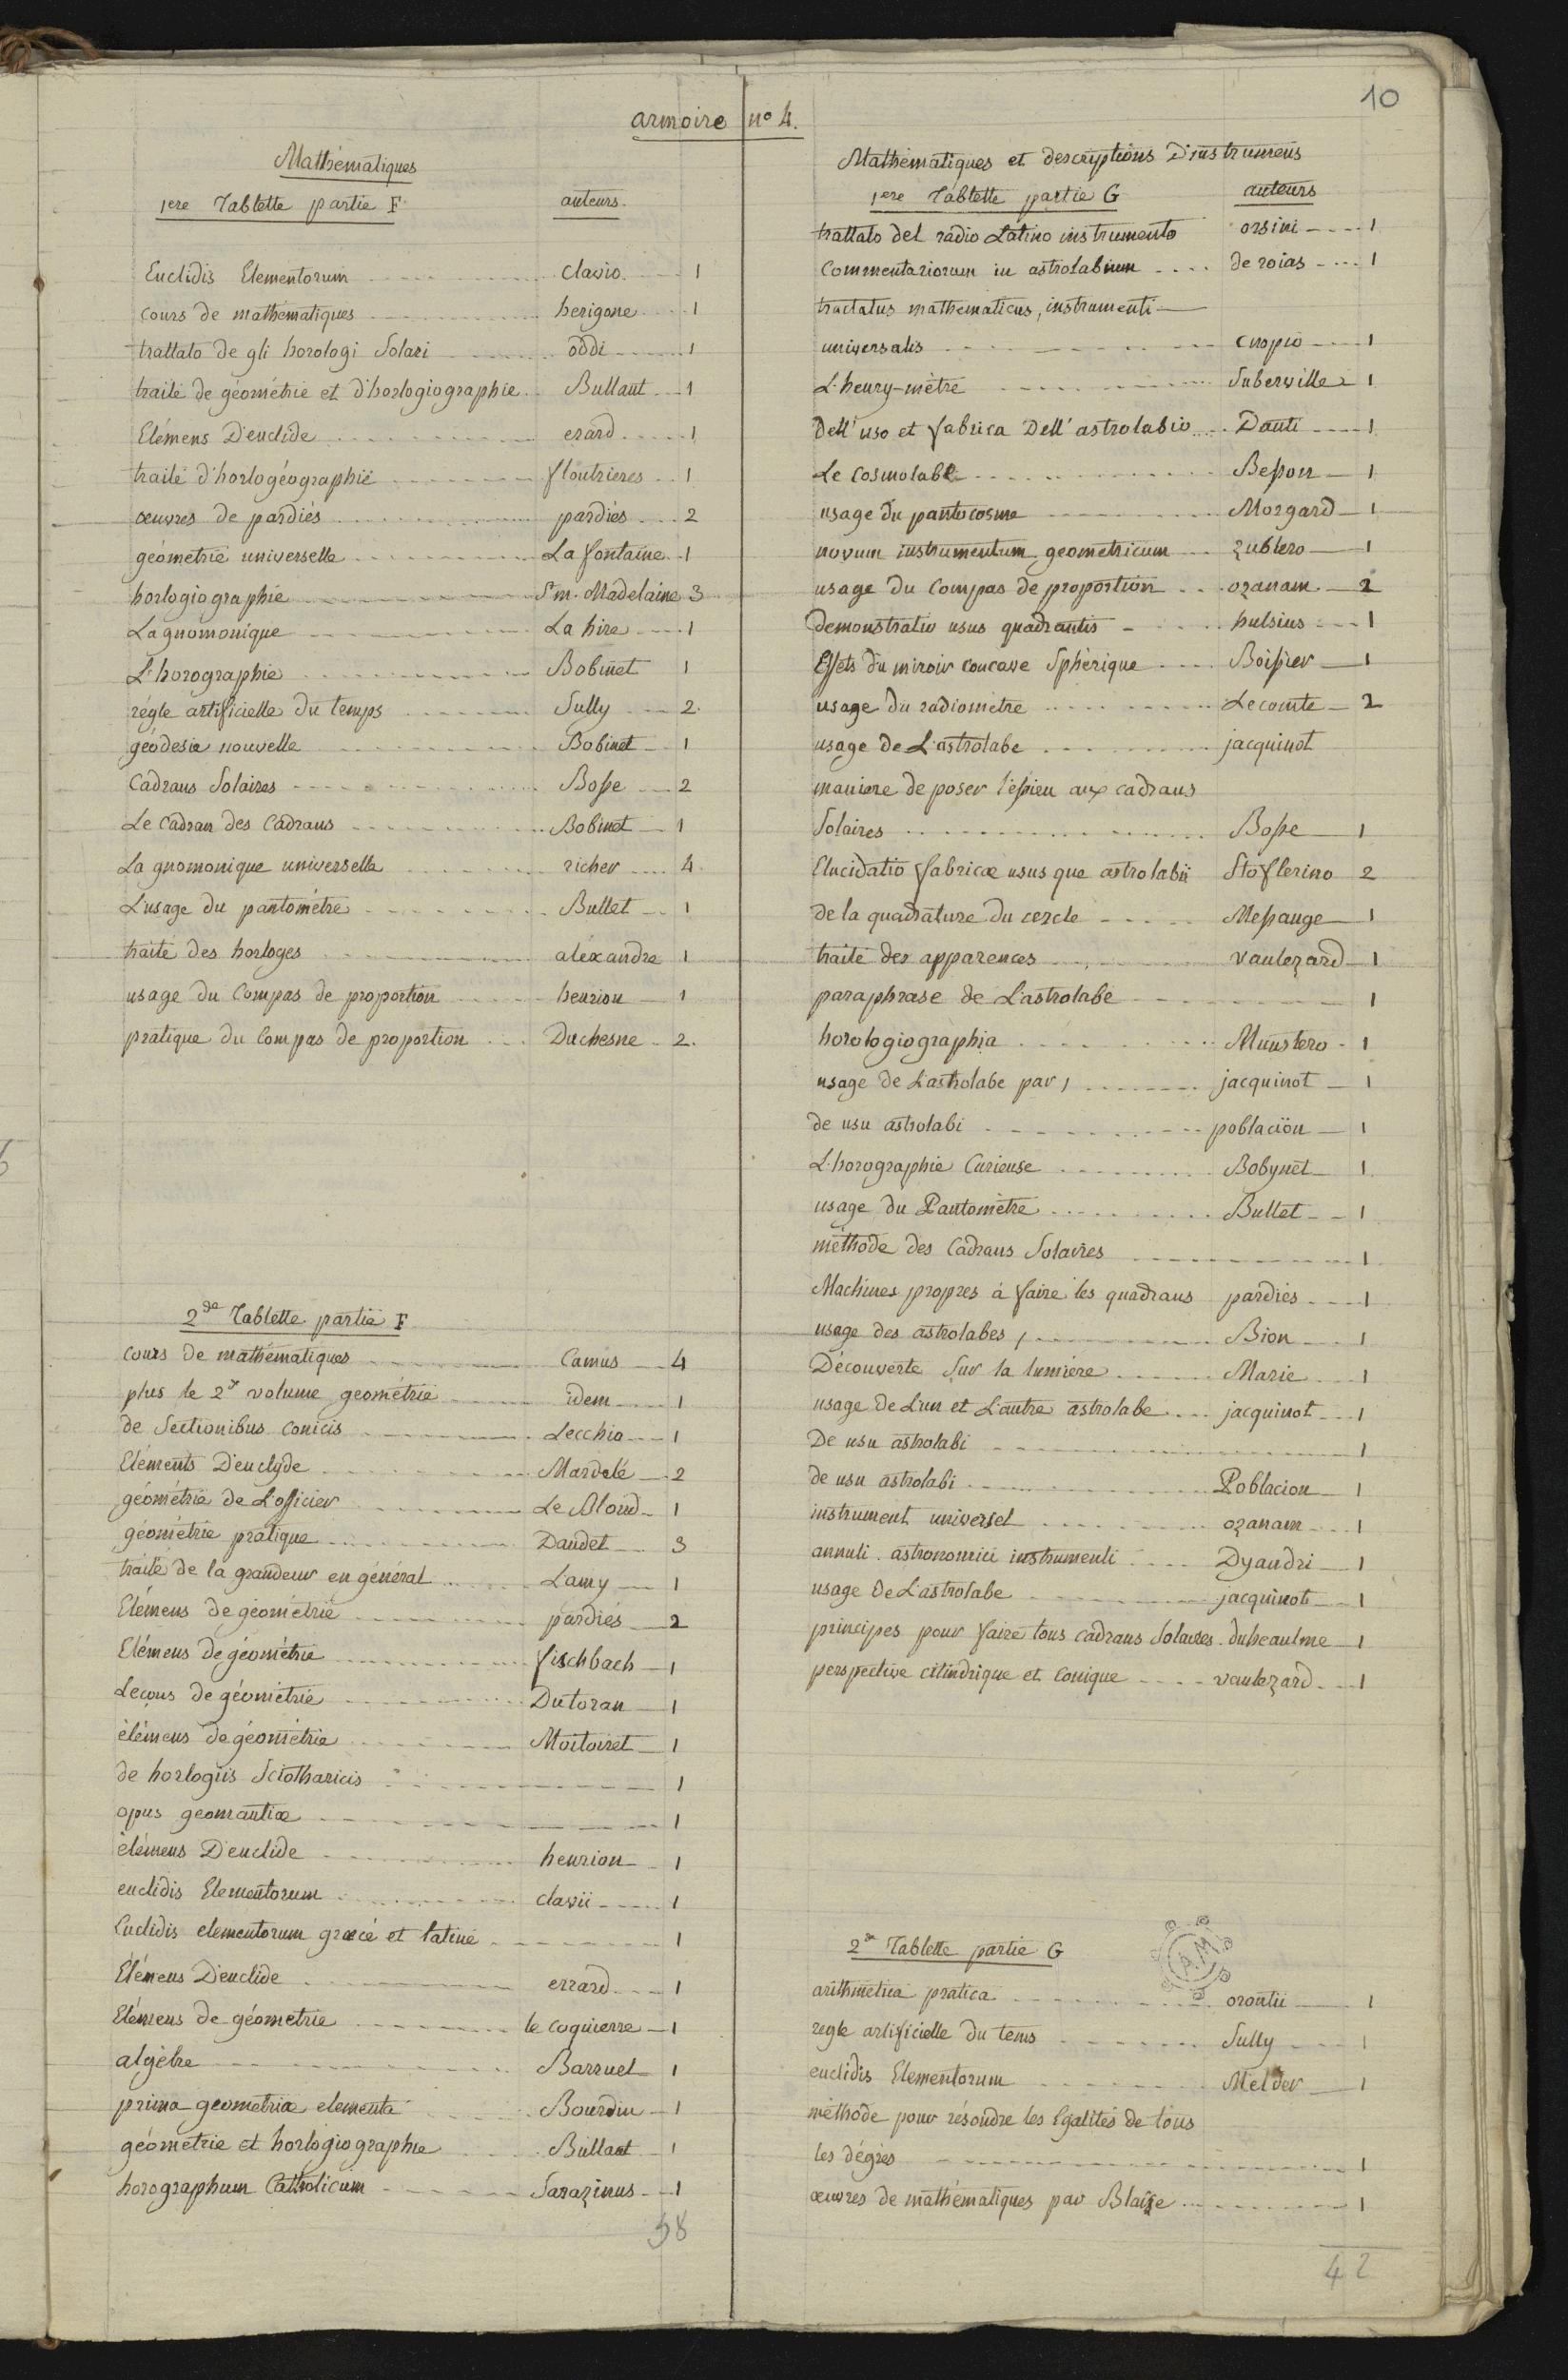 10
armoire n° 4.
Mathématiques
1ere Tablette partie F auteurs.
Euclidis Elementorum clavio 1
cours de mathématiques herigone 1
trattato de gli horologi Solari oddi 1
traité de géométrie et d'horlogiographie Bullant 1
Elémens D'euclide erard 1
traité d'horlogéographie floutrieres 1
œuvres de pardies pardies 2
géometrie universelle La fontaine 1
horlogiographie S.m. Madelaine 3
La gnomonique La hire 1
L'horographie Bobinet 1
régle artificielle du temps Sully 2
géodesie nouvelle Bobinet 1
Cadrans Solaires Bosse 2
Le Cadran des Cadrans Bobinet 1
La gnomonique universelle richer 4
L'usage du pantométre Bullet 1
traité des horloges aléxandre 1
usage du Compas de proportion henrion 1
pratique du Compas de proportion Duchesne 2.
2de Tablette partie F
cours de mathématiques Camus 4
plus le 2e volume geométrie idem 1
de Sectionibus conicis Lecchio 1
Eléments D'euclyde Mardelé 2
géométrie de L'officier Le Blond 1
géométrie pratique Daudet 3
traité de la grandeur en général Lamy 1
Elémens de géométrie pardies 2
Elémens de géométrie fischbach 1
Leçons de géométrie Dutoran 1
élémens de géométrie Moitoiret 1
de horlogiis Sciotharicis 1
opus geomantiæ 1
élémens D'euclide henrion 1
euclidis Elementorum clavii 1
Euclidis elementorum græcé et latiné 1
Elémens D'euclide errard 1
Elémens de géometrie le coquierre 1
algèbre Barruel 1
prima geometriæ elementa Bourdin 1
géometrie et horlogiographie Bullant 1
horographum Catholicum Sarazinus 1
58
Mathématiques et descriptions D'instrumens
1ere Tablette partie G auteurs
trattato del radio Latino instrumento orsini 1
Commentariorum in astrolabium de roias 1
tractatus mathematicus, instrumenti
universalis cnopio 1
L'henry-mètre Suberville 1
Dell'uso et fabrica Dell'astrolabio Danti 1
Le Cosmolabe Besson 1
usage du pantocosme Morgard 1
novum instrumentum geometricum zublero 1
usage du Compas de proportion ozanam 2
Demonstratio usus quadrantis hulsius 1
Effets du miroir concave Sphérique Boissier 1
usage du radiomètre Lecomte 2
usage de L'astrolabe jacquinot
maniere de poser l'essieu aux cadrans
Solaires Bosse 1
Elucidatio fabricæ usus que astrolabii Stoflerino 2
de la quadrature du cercle Messange 1
traité des apparences vaulezard 1
paraphrase de L'astrolabe 1
horologiographia Munstero 1
usage de L'astrolabe par, jacquinot 1
de usu astrolabi poblacion 1
L'horographie Curieuse Bobynet 1
usage du Pantomètre Bullet 1
méthode des Cadrans Solaires 1
Machines propres à faire les quadrans pardies 1
usage des astrolabes, Bion 1
Découverte Sur la lumière Marie 1
usage de L'un et L'autre astrolabe jacquinot 1
De usu astrolabi 1
de usu astrolabi Poblacion 1
instrument universel ozanam 1
annuli astronomici instrumenti Dyandri 1
usage de L'astrolabe jacquinot 1
principes pour faire tous cadrans Solaires duheaulme 1
perspective cilindrique et Conique vaulezard 1
2de Tablette partie G
A.M
arithmetica pratica orontii 1
regle artificielle du tems Sully 1
euclidis Elementorum Melder 1
méthode pour résoudre les Egalités de tous
les dégrés 1
œuvres de mathématiques par Blaise 1
42